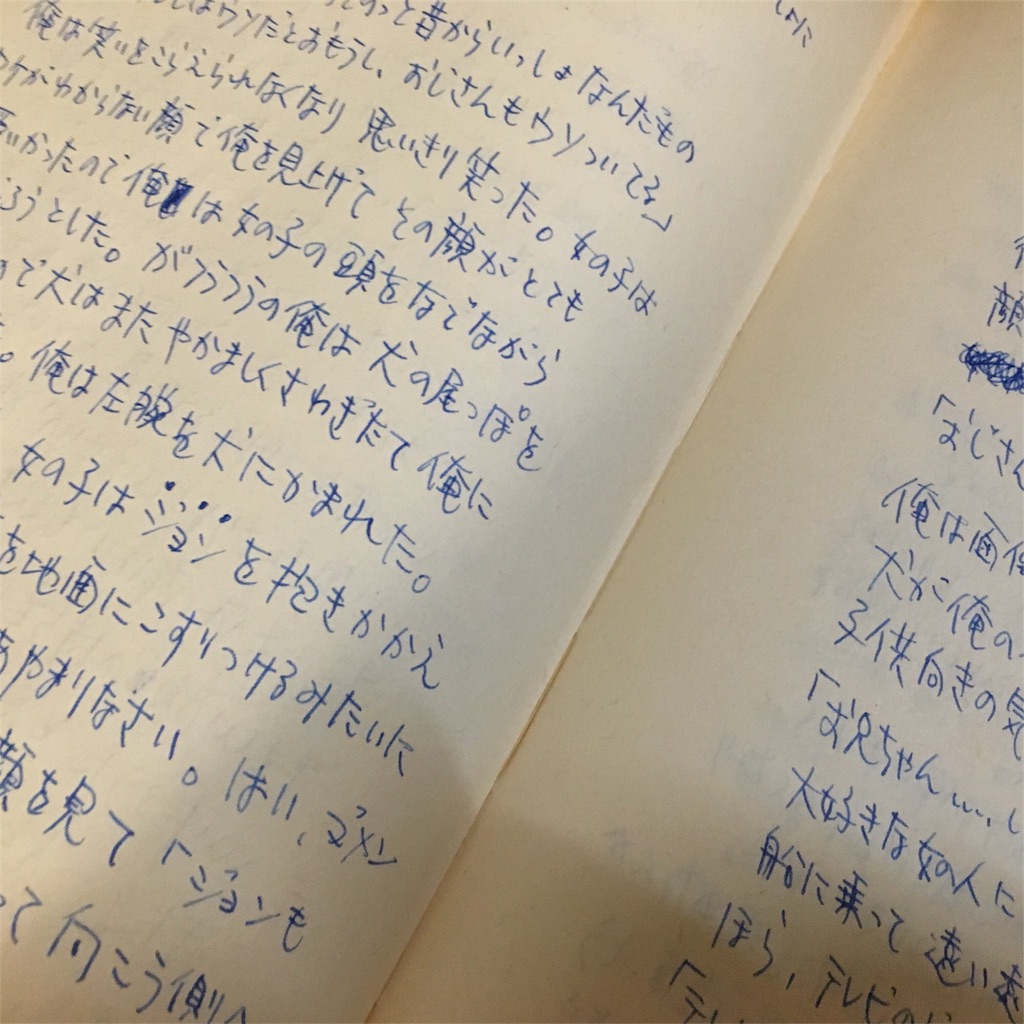 っと昔からいっしょなんだもの
はウソだとおもうし、おじさんもウソついてる」
俺は笑いをこらえられなくなり 思いきり笑った。女の子は
ワケがわからない顔で俺を見上げて その顔がとても
かったので俺は女の子の頭をなでながら
ろうとした。がフラフラの俺は犬の尾っぽを
で犬はまたやかましくさわぎたて俺に
。俺は左腕を犬にかまれた。
女の子はジョンを抱きかかえ
を地面にこすりつけるみたいに
あやまりなさい。はい、ゴメン
顔を見て「ジョンも
って向こう側へ
顔
「おじさん
俺は面倒
犬が俺の
子供向きの気
「お兄ちゃん……、
大好きな女の人に
船に乗って遠い遠
ほら、テレビの
「テレ